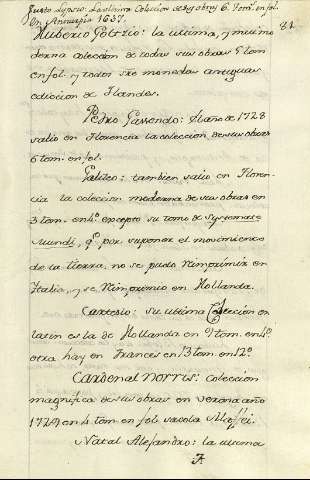 Justo Lipsio: La ultima Coleccion de sus obras 6. tom. en fol.
En Antuerpia 1637.
81
Huberto Goltzio: la ultima, y mui mo
derna coleccion de todas sus obras 5 tom.
en fol. y todos sre monedas antiguas
edicion de Flandes.
Pedro Gassendo: el año de 1728
salio en Florencia la coleccion de sus obras
6 tom. en fol.
Galileo: tambien salio en Floren-
cia la coleccion moderna de sus obras en
3 tom. en 4º excepto su tomo de Systemate
Mundi, q.e por suponer el movimiento
de la tierra, no se pudo Rimprimir en
Italia, y se Rimprimio en Hollanda.
Cartesio: su ultima Coleccion en
latin es la de Hollanda en 9 tom. en 4º
otra hay en Frances en 13 tom. en 12º
Cardenal Norris: coleccion
magnifica de sus obras en verona año
1729 en 4 tom en fol sacola Maffei.
Natal Alejandro: la ultima